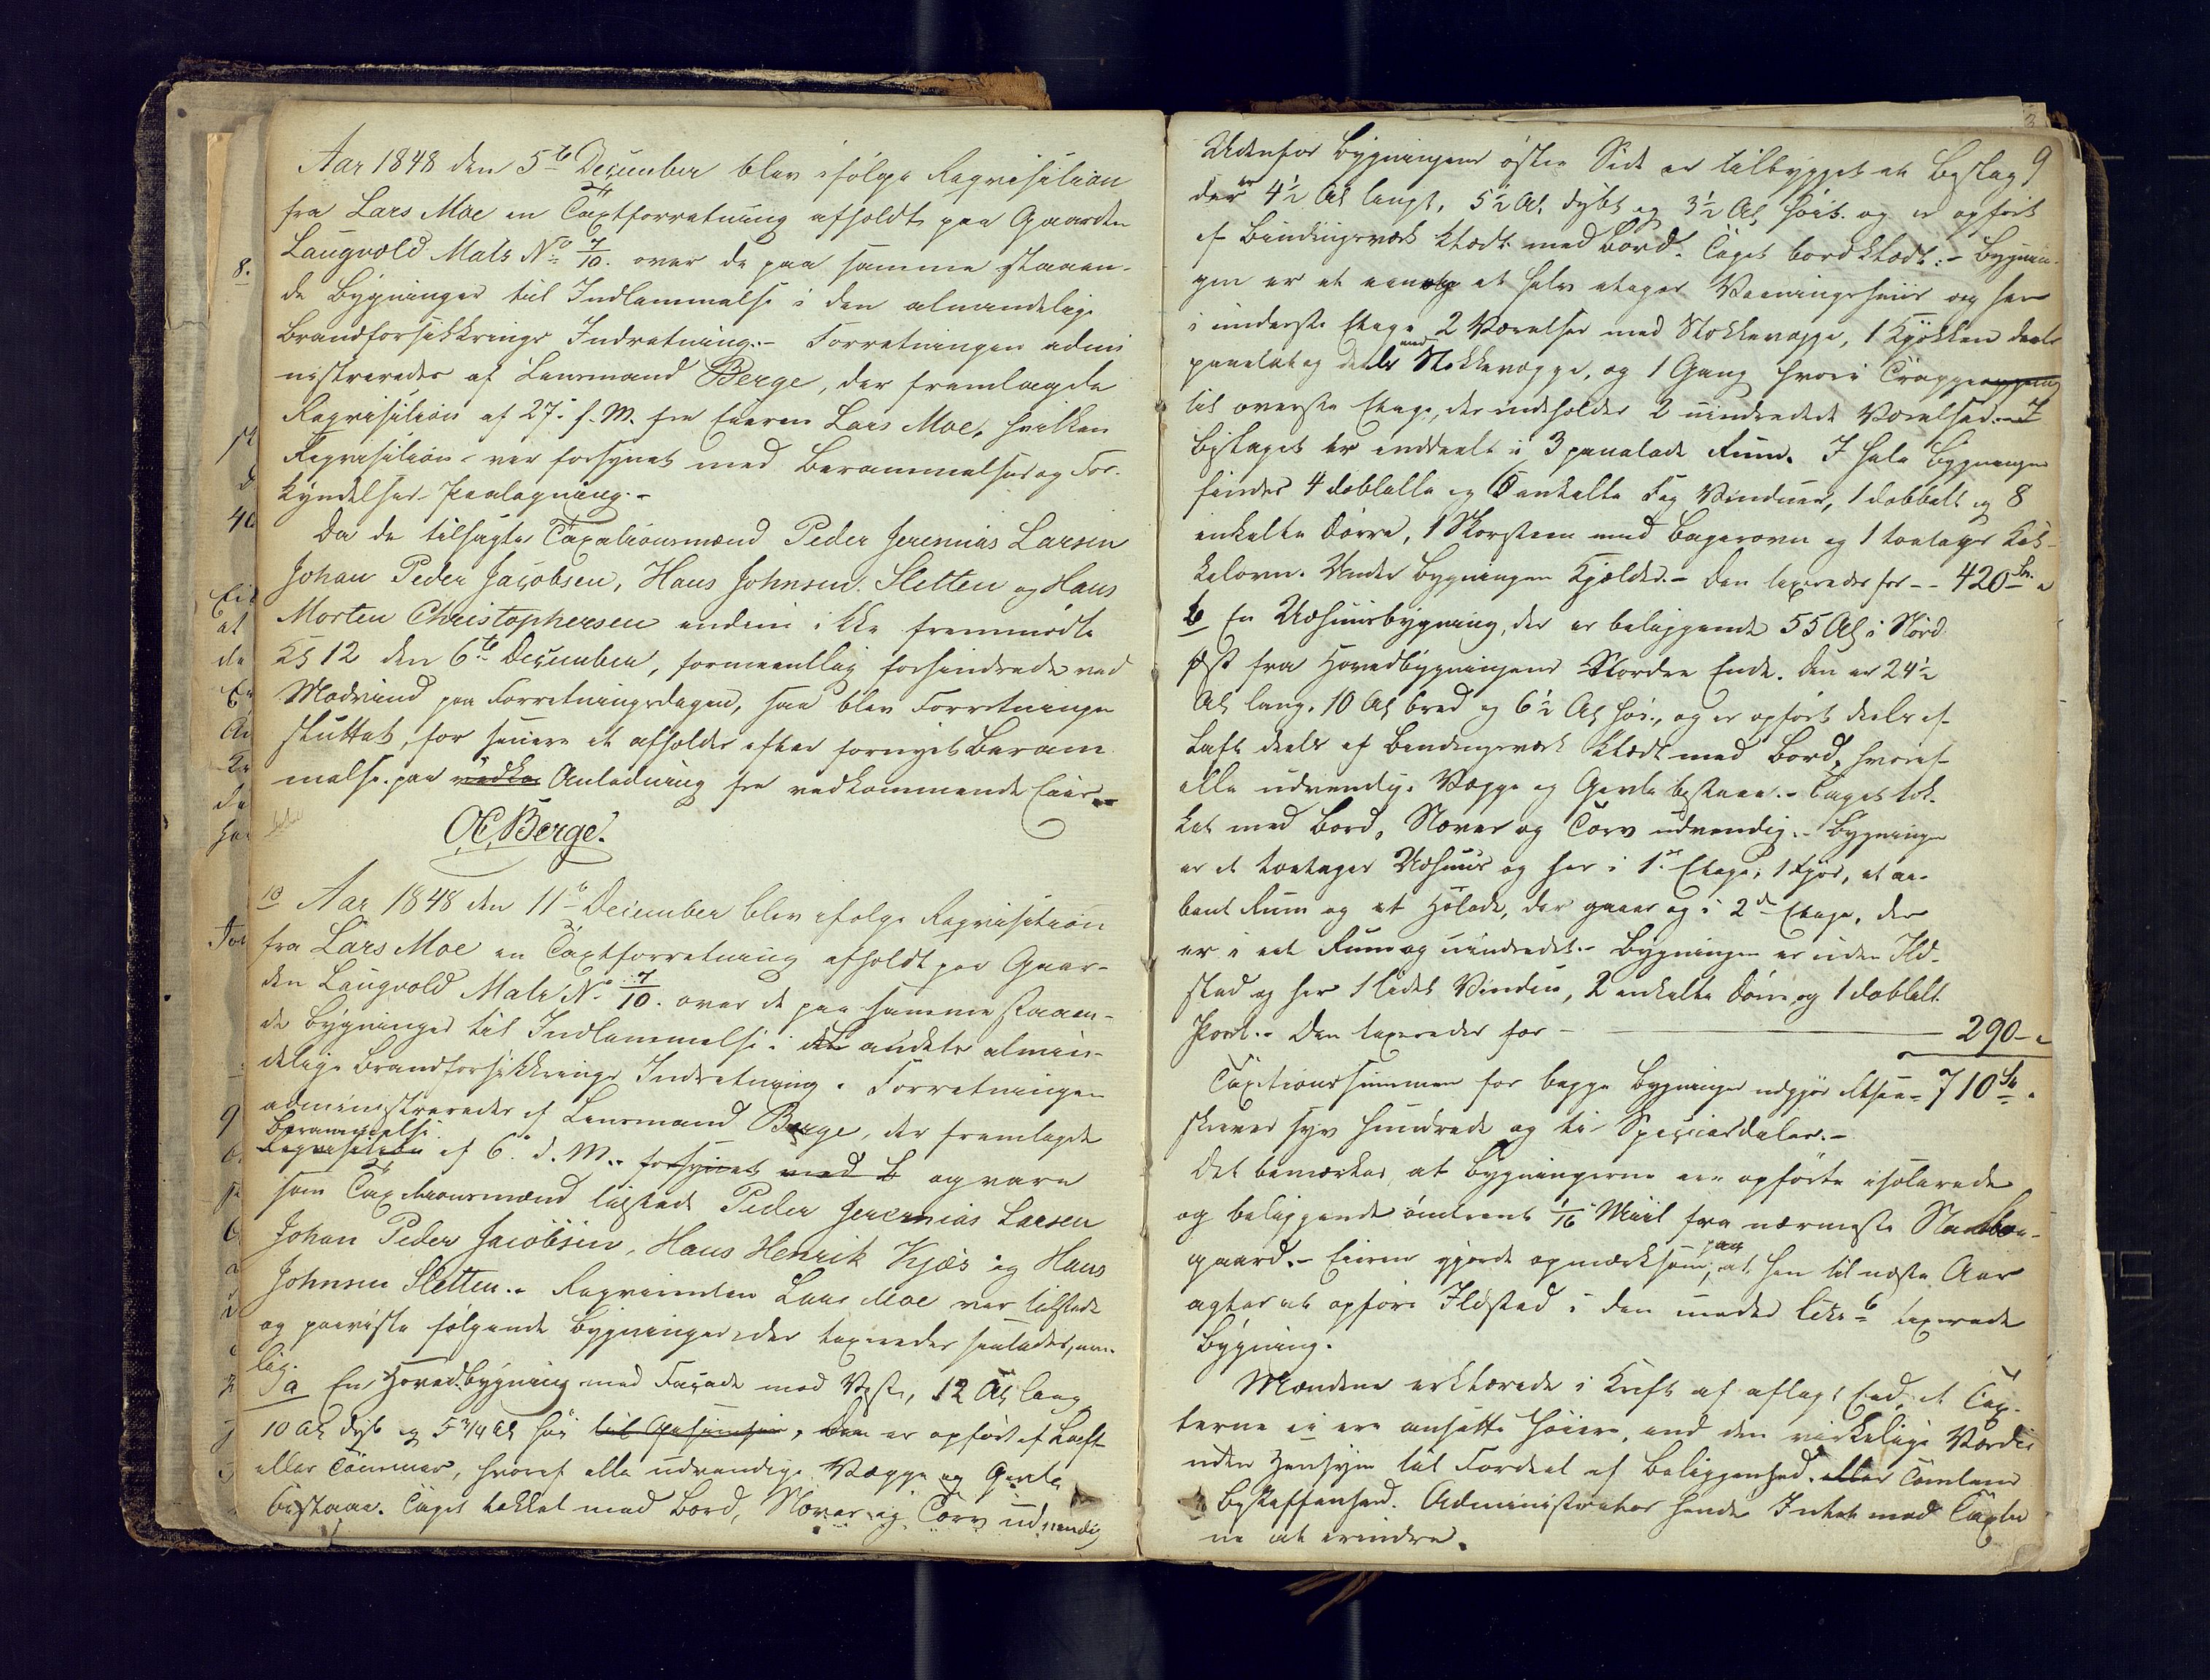 Aar 1848 den 5te December blev ifølge Reqvisition
fra Lars Moe en Taxtforretning afholdt paa Gaarden
Laugvold Matr No 7/10. over de paa samme staaen-
de Bygninger til Indlemmelse i den almindelige
Brandforsikkrings Indretning.- Forretningen admi
nistreredes af Lensmand Berge, der fremlagde
Reqvisition af 27. f. M. fra Eieren Lars Moe, hvilken
Reqvisition var forsynet med Berammelses og For-
kyndelses Paategning.-
Da de tilsagte Taxationsmænd Peder Jeremias Larsen
Johan Peder Jacobsen, Hans Johnsen Sletten og Hans
Morten Christophersen endnu ikke fremmødte
Kl 12 den 6te December, formeentlig forhindrede ved
Modvind paa Forretningsdagen, saa blev Forretningen
sluttet, for senere at afholdes efter fornyet Beram
melse paa vedko Anledning fra vedkommende Eier.
OC Berge.
10 Aar 1848 den 11te December blev ifølge Reqvisition
fra Lars Moe en Taxtforretning afholdt paa Gaar-
den Laugvold Matr No 7/10. over de paa samme staaen-
de Bygninger til Indlemmelse i den almin-
delige Brandforsikkrings Indretning. Forretningen
administreredes af Lensmand Berge, der fremlagde
Berammelse
Reqvisition af 6. d. M. forsynet med B og vare
som Taxationsmænd tilstede Peder Jeremias Larsen
Johan Peder Jacobsen, Hans Henrik Kjæs og Hans
Johnsen Sletten.- Reqvirenten Lars Moe var tilstede
og paaviste følgende Bygninger der taxeredes saaledes, nem-
lig.
a En Hovedbygning med Façade mod Vest, 12 Al lang
10 Al dyb og 5 3/4 Al høi til Gesimsen, Den er opført af Laft
eller Tømmer, hvoraf alle udvendige Vægge og Gavle
bestaae. Taget tækket med Bord, Næver og Torv udvendig
9
Udenfor Bygningens østre Side er tilbygget et Bislag
der er 4 1/2 Al langt, 5 1/2 Al. dybt og 3 1/2 Al høit. og er opført
af Bindingsværk klædt med Bord. Taget bordklædt.- Bygnin-
gen er et een og et halv etages Vaaningshuus og har
i underste Etage 2 Værelser med Stokkevægge, 1 Kjøkken deels
panelet og deels med Stokkevægge, og 1 Gang hvori Trappeopgang
til øverste Etage, der indeholder 2 uindredede Værelser.- I
Bislaget er inddeelt i 3 panelede Rum. I hele Bygningen
findes 4 dobbelte og 6 enkelte Fag Vinduer, 1 dobbelt og 8
enkelte Dørre, 1 Skorsteen med Bagerovn og 1 toetages Kak-
kelovn. Under Bygningen Kjælder.- Den taxeredes for -- 420 Sp.
b En Udhuusbygning, der er beliggende 55 Al i Nord
øst fra Hovedbygningens Nordre Ende. Den er 24 1/2
Al lang, 10 Al bred og 6 1/2 Al høi, og er opført deels af
Laft deels af Bindingsværk klædt med Bord, hvoraf
alle udvendige Vægge og Gavle bestaae.- Taget tæk-
ket med Bord, Næver og Torv udvendig.- Bygningen
er et toetages Udhuus og har i 1ste Etage, 1 Fjøs, et aa-
bent Rum og et Hølade, der gaaer og i 2den Etage, der
er i eet Rum og uindredet.- Bygningen er uden Ild-
sted og har 1 lidet Vindue, 2 enkelte Dørre og 1 dobbelt
Port.- Den taxeredes for - 290-
Taxtionssummen for begge Bygninger udgjør altsaa - 710 Sp.
skriver syv hundrede og ti Speciesdaler.-
Det bemærkes, at Bygningerne ere opførte isolerede
og beliggende omtrent 1/16 Miil fra nærmeste Nabo-
gaard.- Eieren gjorde opmærksom paa, at han til næste Aar
agter at opføre Ildsted i den under Litr b taxerede
Bygning.
Mændene erklærede i Kraft af aflagt Eed, at Tax-
terne ei ere ansatte høiere, end den virkelige Værdie
uden Hensyn til Fordeel af Beliggenhed eller Tomtens
Beskaffenhed. Administrator havde Intet mod Taxter
ne at erindre.